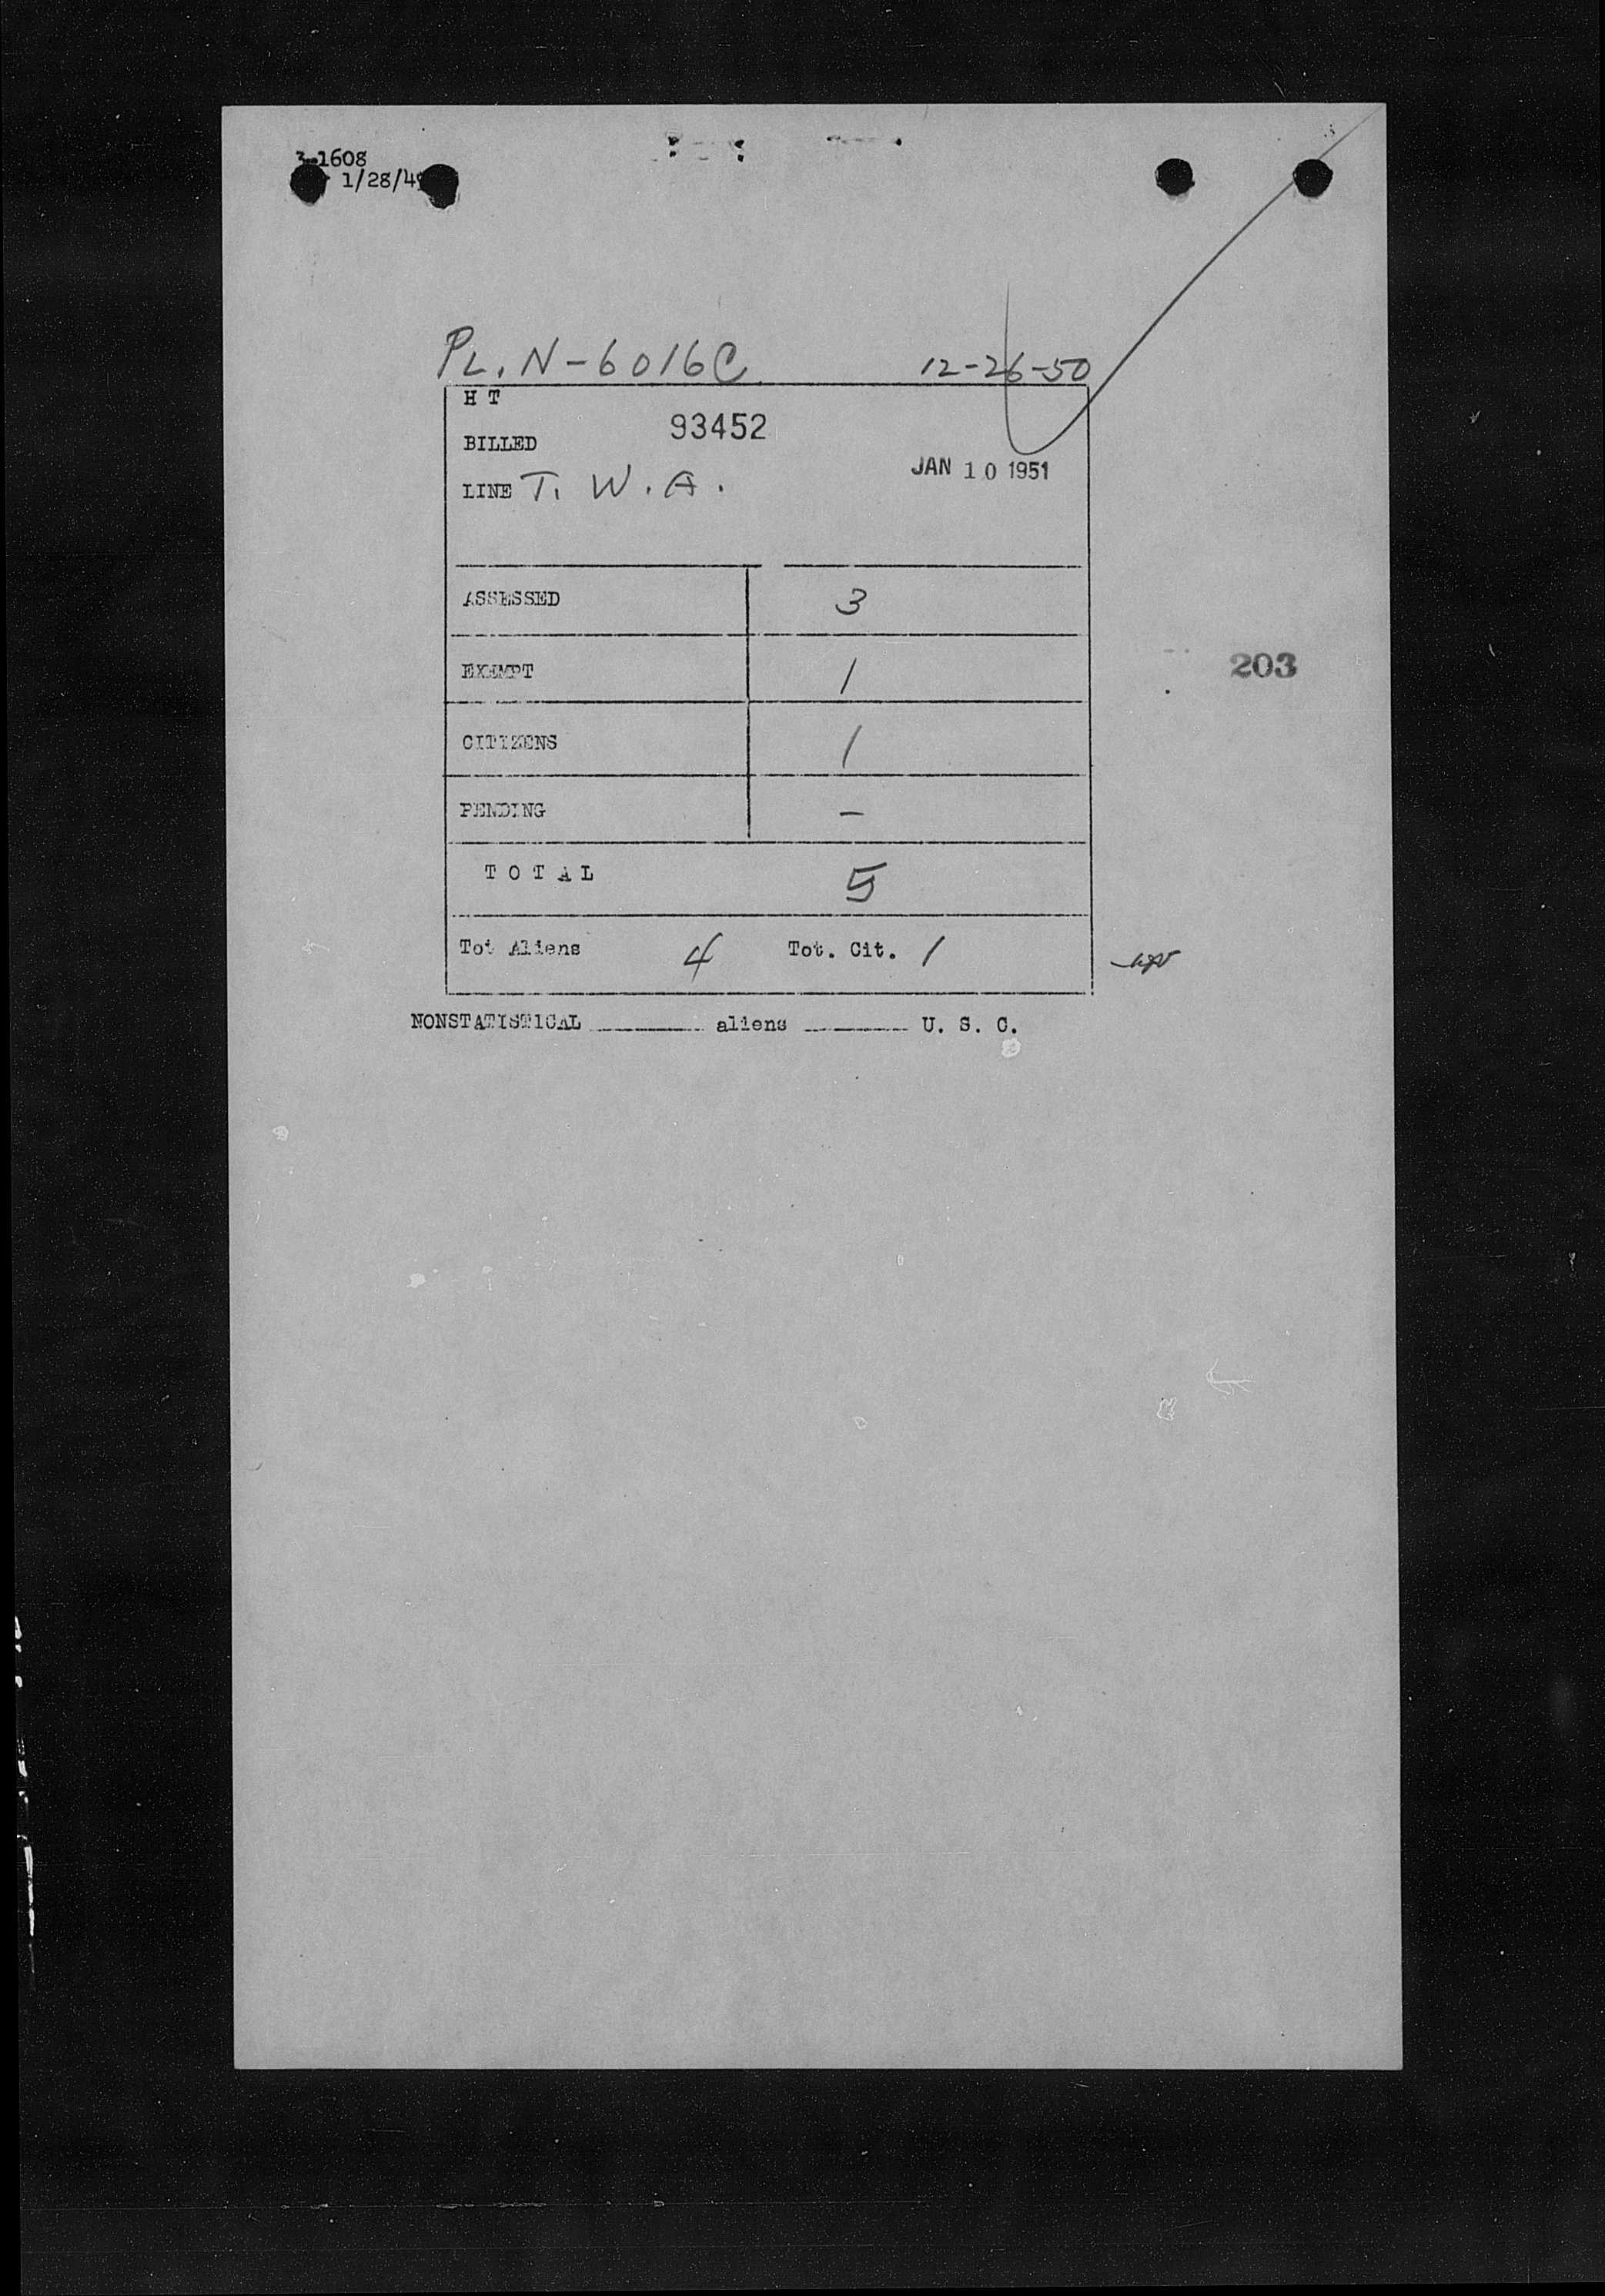 3-1608
1/28/49
PL. N-6016C 12-26-50
H T
BILLED 93452
JAN 10 1951
LINE T. W. A.
ASSESSED 3
EXEMPT 1
203
CITIZENS 1
PENDING -
T O T A L 5
Tot Aliens 4 Tot. Cit. 1
NONSTATISTICAL ________ aliens ________ U. S. C.